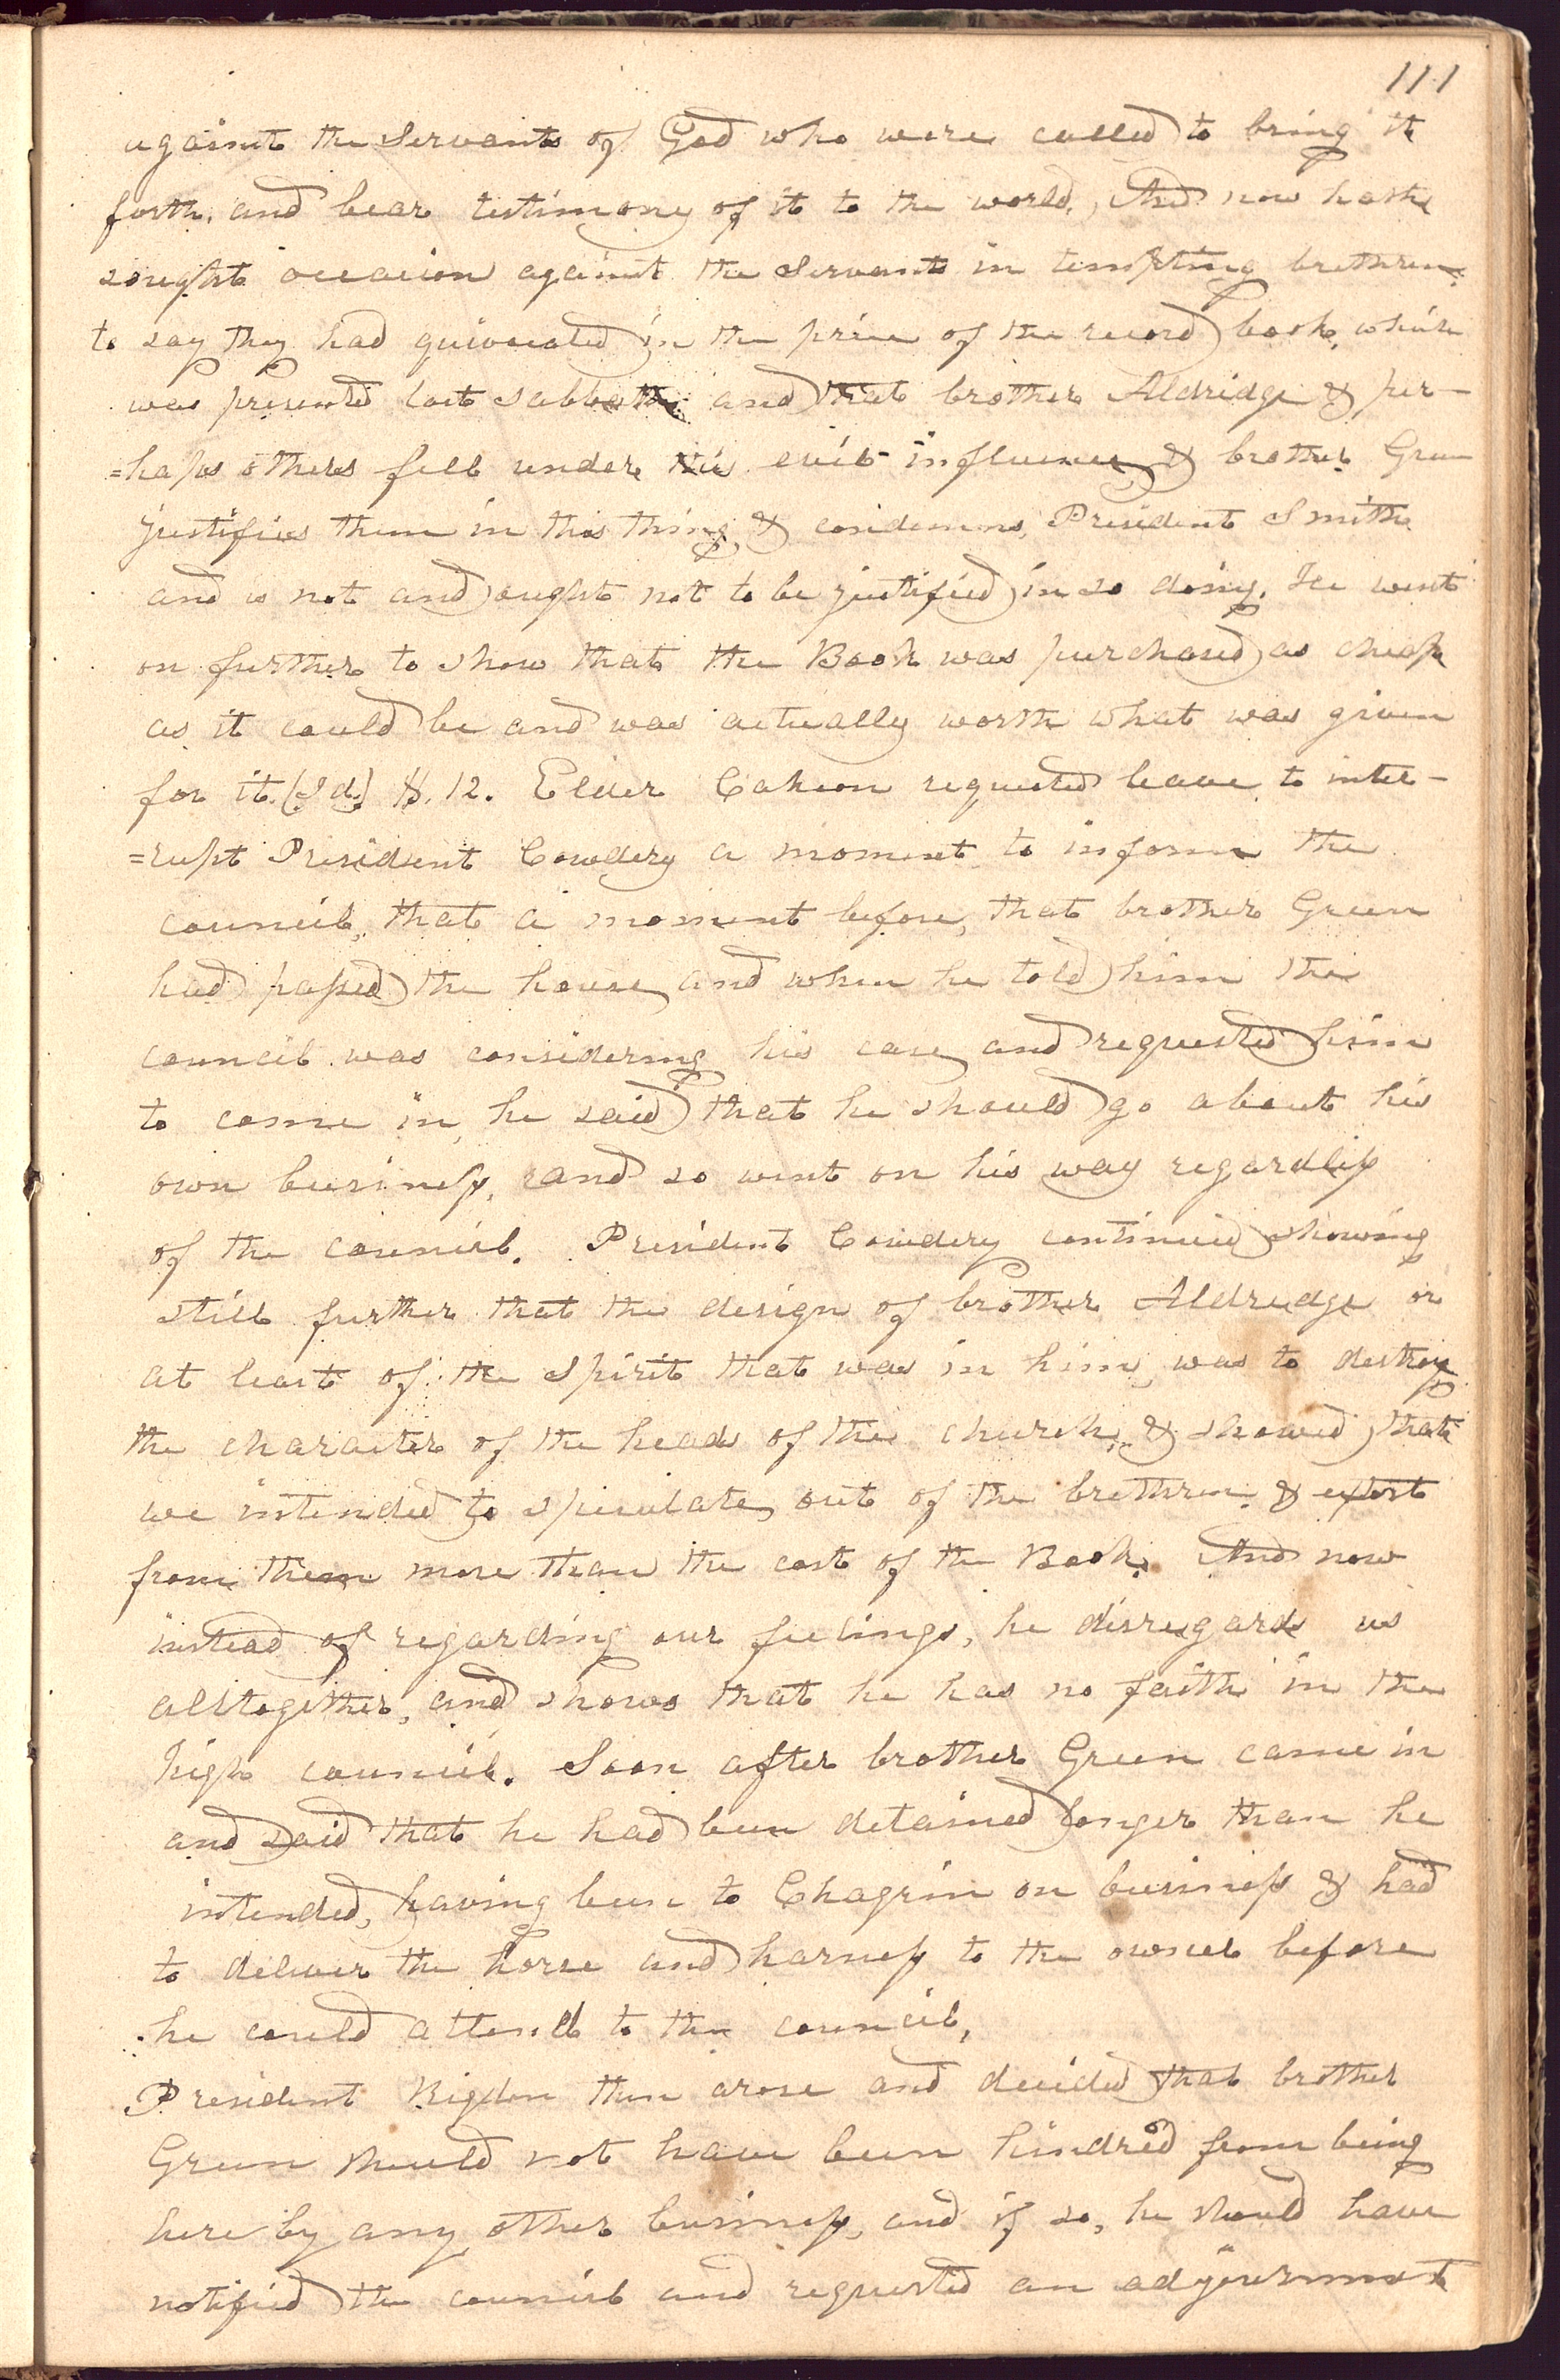 111
against the Servants of God who were called to bring it
forth, and bear testimony of it to the world, And now hath
sought occasion against the Servants in tempting brethren
to say they had quivocated in the price of the record book, which
was presented last sabbath and that brother Aldridge & per-
=haps others fell under this evil influence, & brother Green
justifies them in this thing, & condemns, President Smith
and is not and ought not to be justified in so doing. He went
on further to show that the Book was purchased as cheap
as it could be and was actually worth what was given
for it. (Id.) $. 12. Elder Cahoon requested leave to inter-
=rupt President Cowdery a moment to inform the
council, that a moment before, that brother Green
had passed the house, and when he told him the
council was considering his case, and requested him
to come in, he said that he should go about his
own business, and so went on his way regardless
of the council. President Cowdery continued showing
still further that the design of brother Aldredge or
at least of the spirit that was in him, was to destroy
the character of the heads of the church, & showed that
we intended to speculate, out of the brethren & extort
from them more than the cost of the Book. And now
instead of regarding our feelings, he disregards us
alltogether, and shows that he has no faith in the
high council. Soon after brother Green came in
and said that he had been detained longer than he
intended, having been to Chagrin on business & had
to deliver the horse and harness to the owner before
he could attend to the council,
President Rigdon then arose and decided that brother
Green should not have been hindred from being
here by any other business, and if so, he should have
notified the council and requested an adjournment